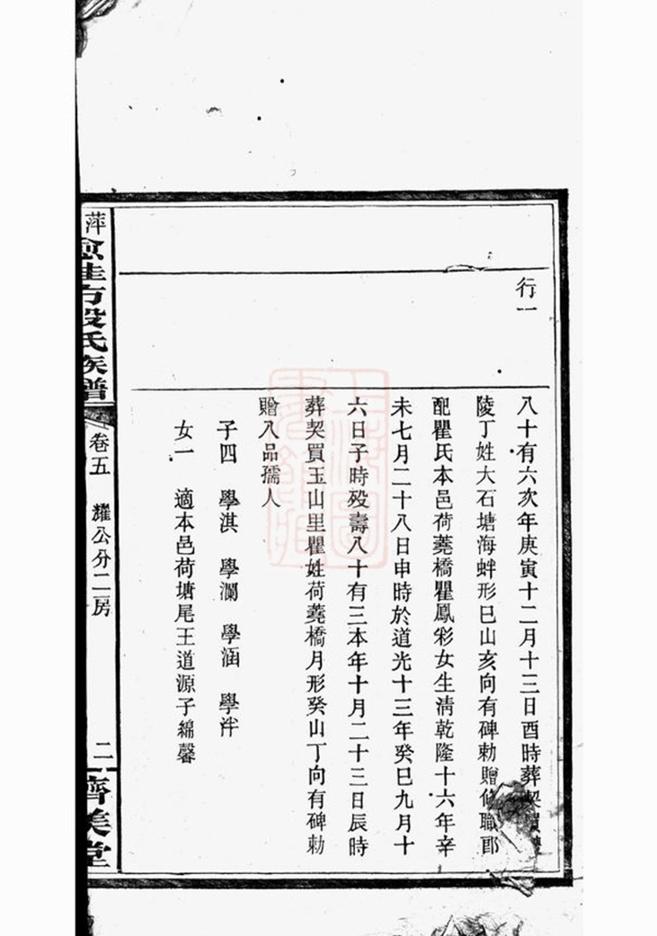 行一
八十有六次年庚寅十二月十三日酉時葬契買
陵丁姓大石塘海蚌形巳山亥向有碑勅贈修職郎
配瞿氏本邑荷蕘橋瞿鳳彩女生清乾隆十六年辛
未七月二十八日申時於道光十三年癸巳九月十
六日子時歿壽八十有三本年十月二十三日辰時
葬契買玉山里瞿姓荷蕘橋月形癸山丁向有碑勅
贈八品孺人
子四 學淇 學瀾 學涵 學泮
女一 適本邑荷塘尾王道源子綿馨
萍
方段氏族譜
卷五 耀公分二房
二
濟美堂